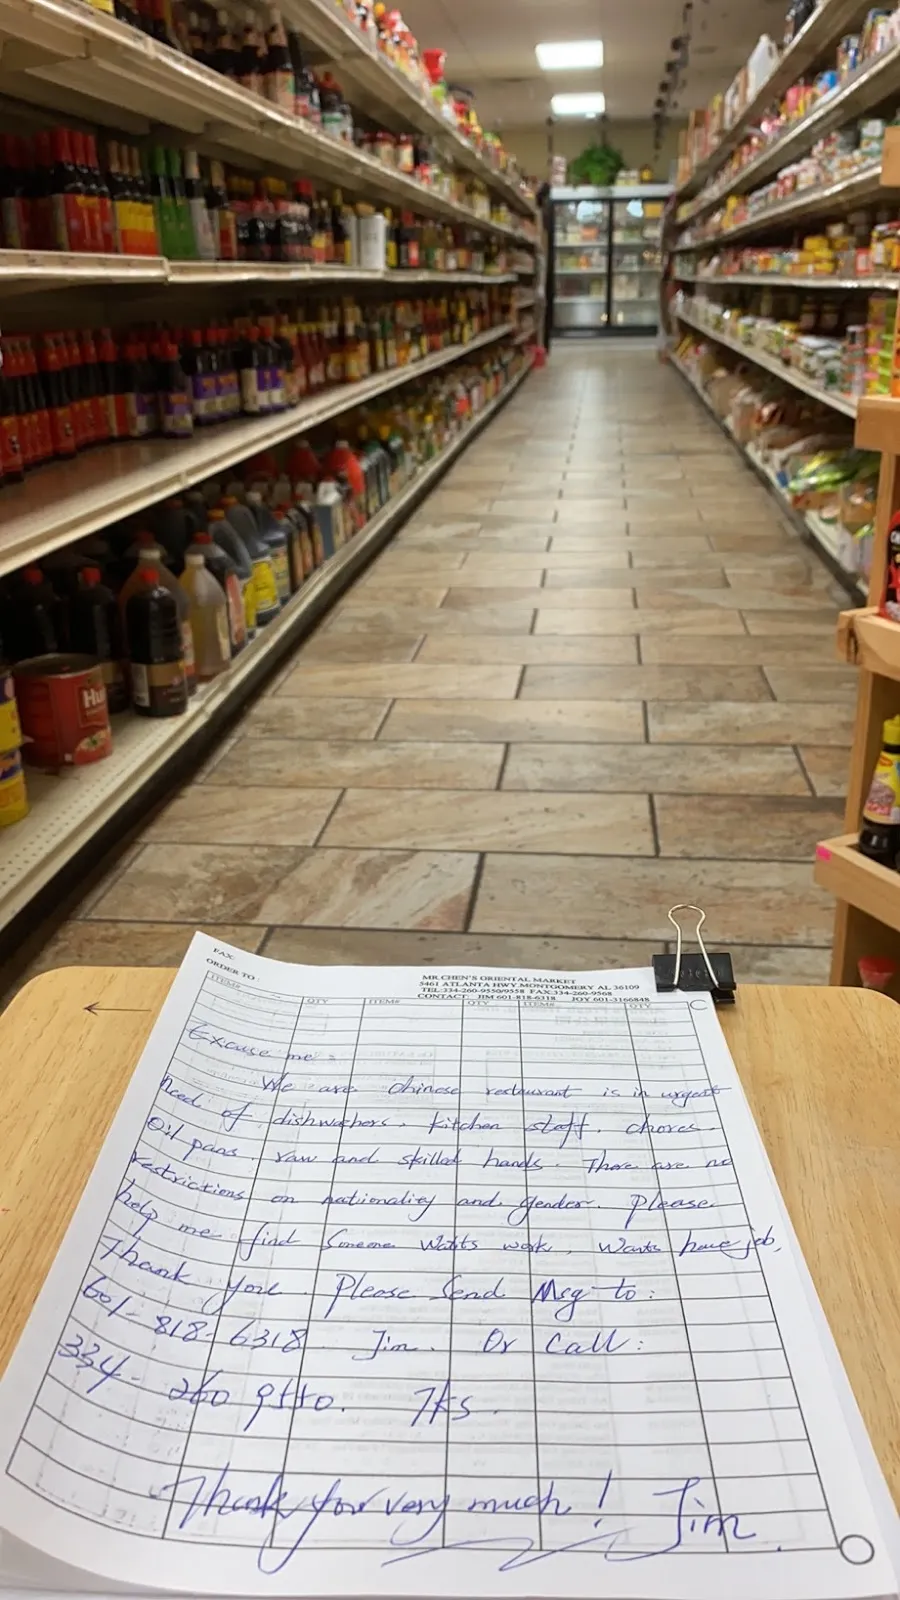 FAX:
ORDER TO:
MR.CHEN'S ORIENTAL MARKET
5461 ATLANTA HWY.MONTGOMERY AL 36109
TEL:334-260-9550/9558 FAX:334-260-9568
CONTACT: JIM 601-818-6318 JOY 601-3166848
ITEM# QTY ITEM# QTY ITEM# QTY
Excuse me:
We are chinese restaurant is in urgent
need of dishwashers. kitchen staff. chores.
Oil pans, raw and skilled hands. There are no
restrictions on nationality and gender. Please
help me find Someone wants work, Wants have job,
Thank you. Please Send Msg to:
601-818-6318 Jim. Or Call:
334-260 9550. Tks.
Thank you very much! Jim
Hu